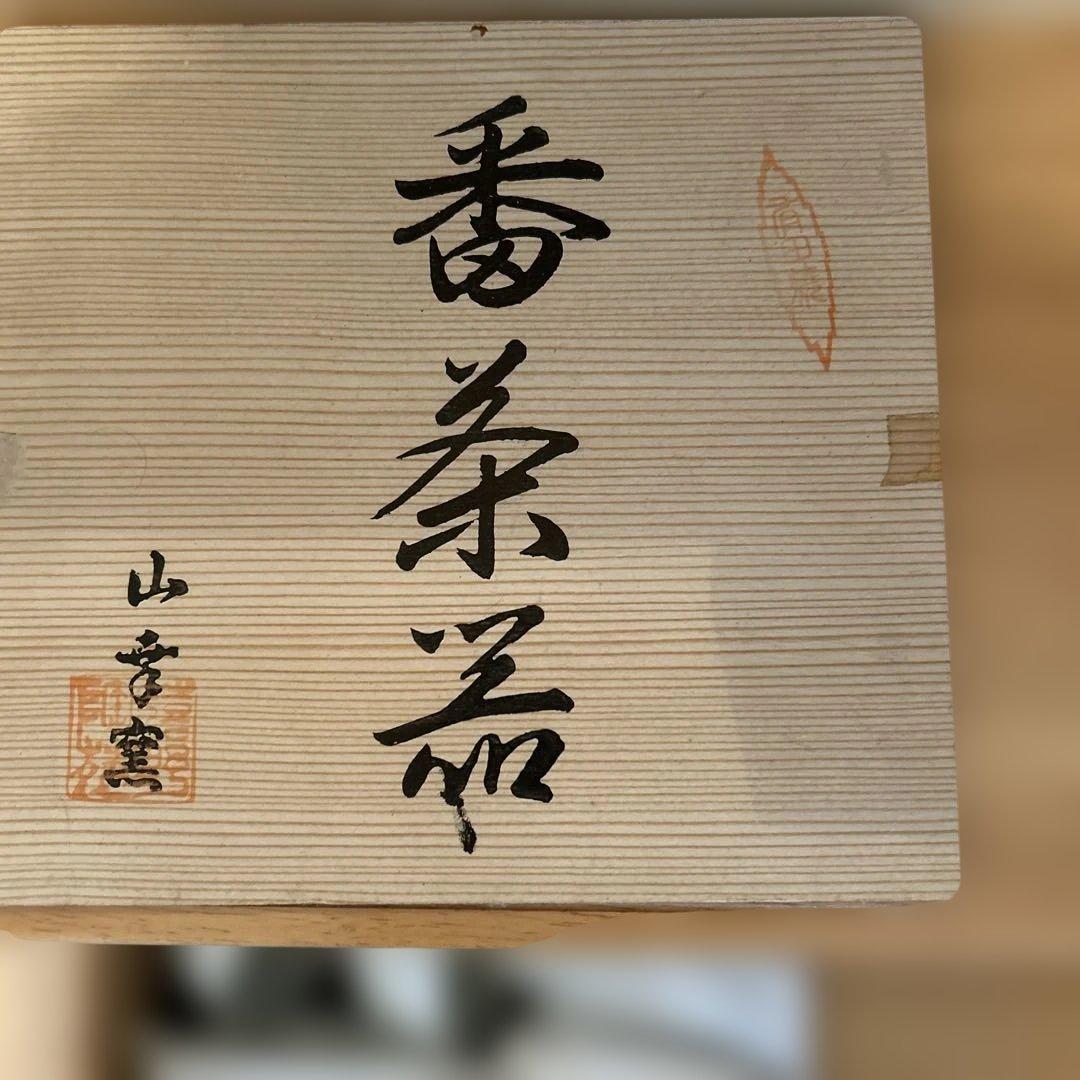 番茶器
山幸窯